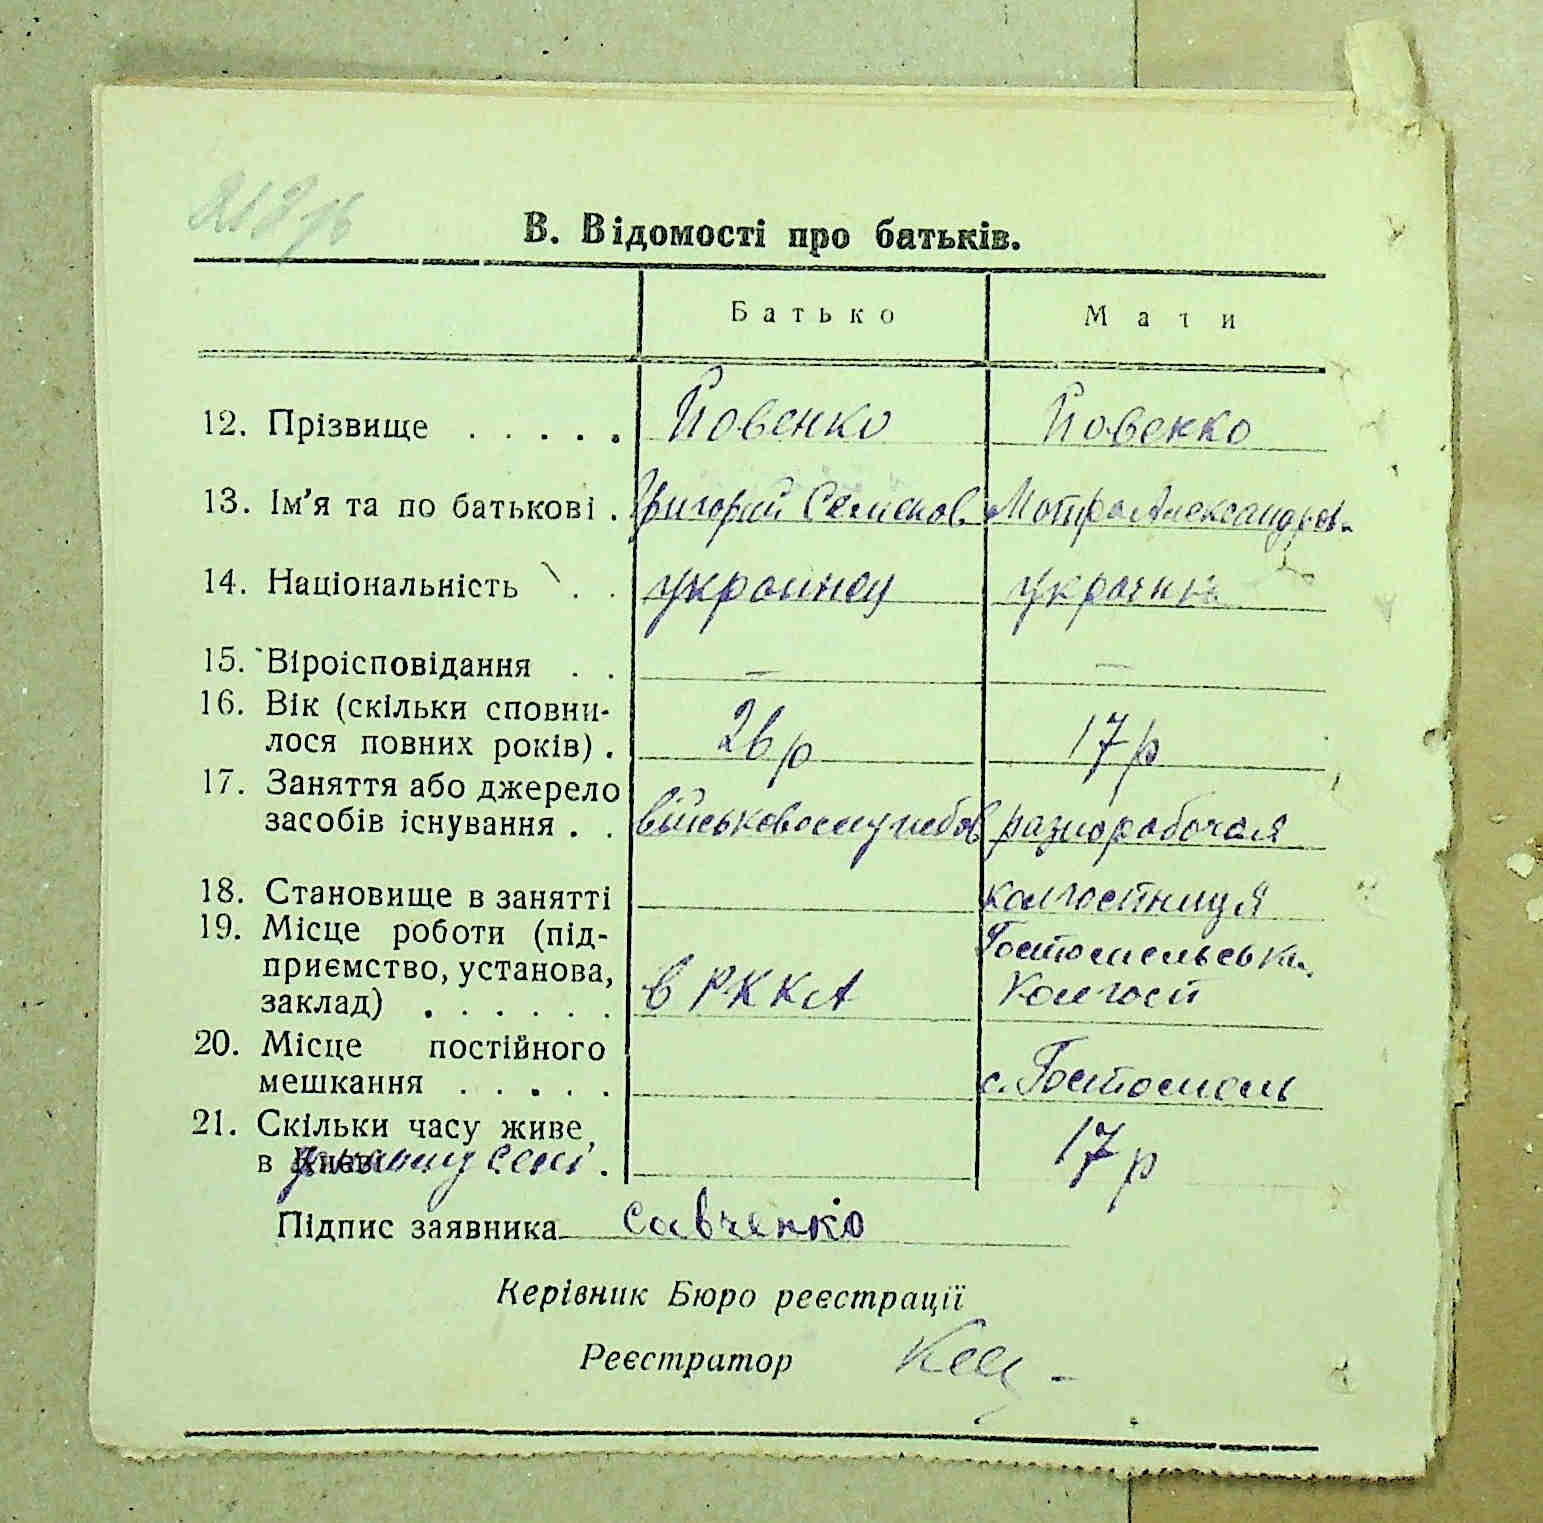 В. Відомості про батьків.
Батько Мати
12. Прізвище . . . . . Йовенко Йовенко
13. Ім'я та по батькові . Григорий Семенов. Мотра Александров.
14. Національність . . украинец украинка
15. Віроісповідання . . — —
16. Вік (скільки сповни-
лося повних років) . 26 р 17 р
17. Заняття або джерело
засобів існування . . військовослужбов разнорабочая
18. Становище в занятті колгостниця
19. Місце роботи (під- Гостомельськ.
приємство, установа, в РККА Колгосп
заклад) . . . . . .
20. Місце постійного
мешкання . . . . . с. Гостомель
21. Скільки часу живе
в Києві селі . 17 р
Підпис заявника Савченко
Керівник Бюро реєстрації
Реєстратор